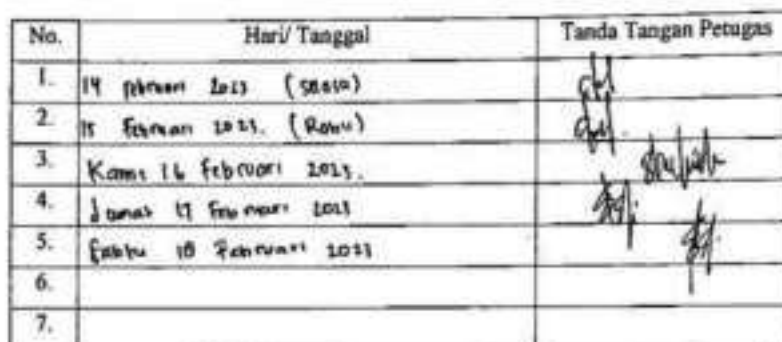 No. Hari/ Tanggal Tanda Tangan Petugas
1. 14 februari 2023 (Selasa)
2. 15 Februari 2023. (Rabu)
3. Kamis 16 Februari 2023.
4. Jumat 17 Februari 2023
5. Sabtu 18 Februari 2023
6.
7.